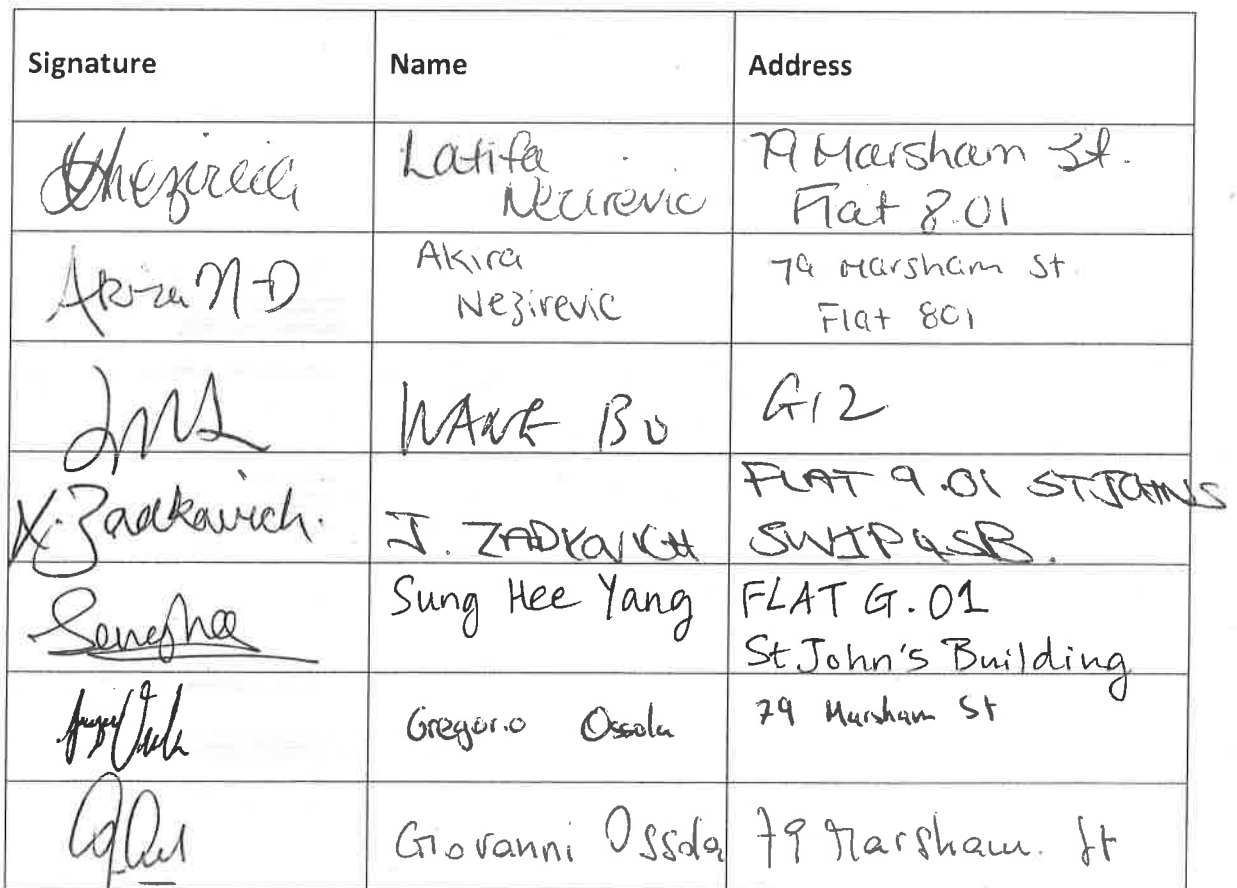 Signature Name Address
Latifa 79 Marsham St.
Nezirevic Flat 8.01
Akira N-D Akira 79 Marsham St
Nezirevic Flat 801
WANG BO G12
X. Zadkovich. J. ZADKOVICH FLAT 9.01 ST JOHNS
SW1P 4SB.
Sunghee Sung Hee Yang FLAT G.01
St John's Building
Gregorio Ossola 79 Marsham St
Giovanni Ossola 79 Marsham. St